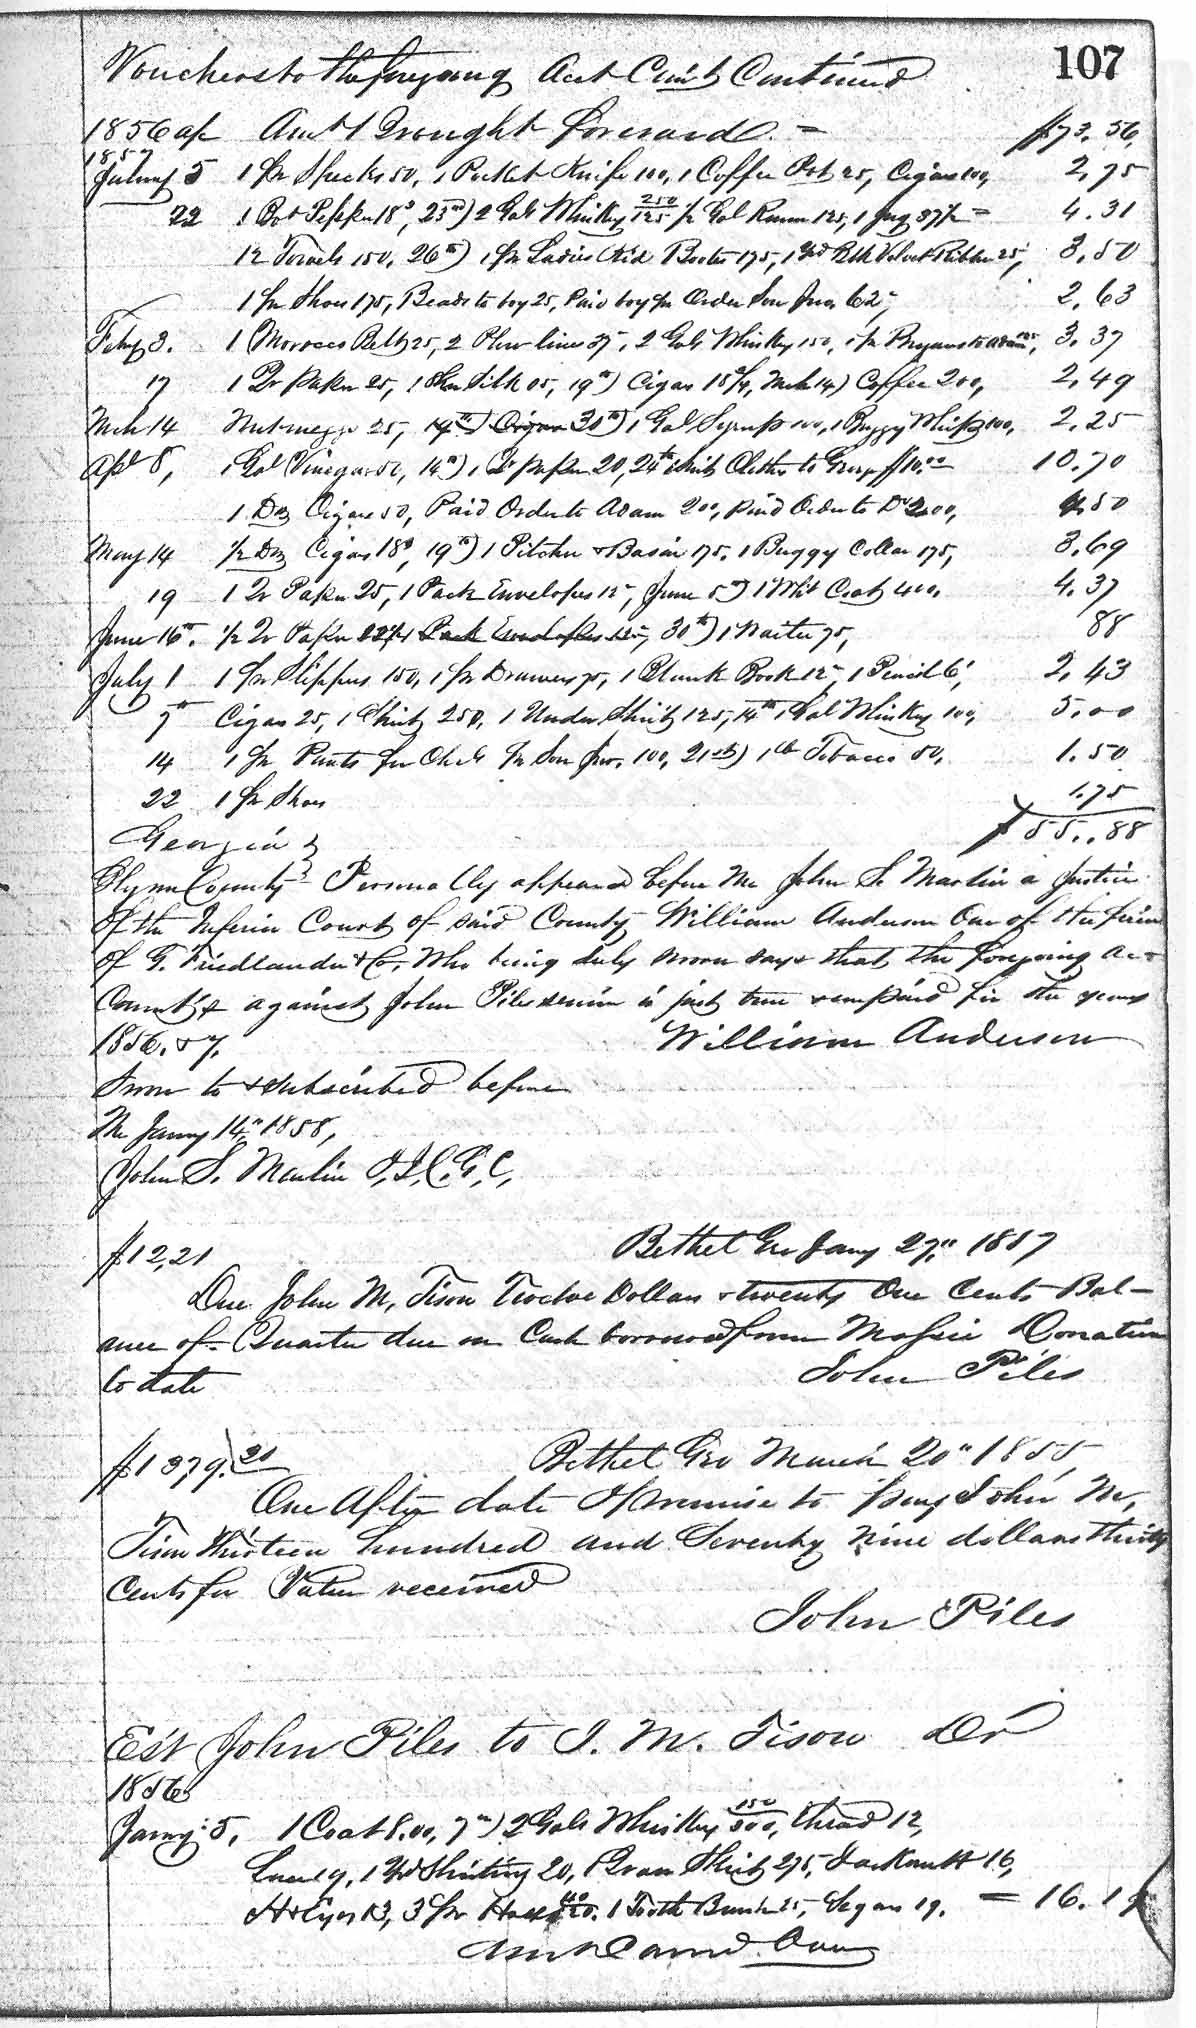 107
Vouchers to the foregoing Acct Cont Continued
1856 ap Amt Brought forward = $73.56,
1857
January 5 1 pr Specks 50, 1 Pocket Knife 100, 1 Coffee Pot 25, Cigars 100, 2,75
22 1 Bot Pepper 18¾, 23rd) 2 Gals Whiskey 250 125 ½ Gal Rum 125, 1 Jug 37½ = 4.31
12 Towels 150, 26th) 1 pr Ladies Kid Boots 175, 1 yd Blk Velvet Ribbon 25, 3,50
1 pr Shoes 175, Beads to boy 25, Paid boy pr Order Son Jno. 62- 2,63
Feby 3. 1 Morocco Belt 25, 2 Plow lines 37-, 2 Gals Whiskey 150, 3,37
17 1 Qr paper 25, 1 Skn Silk 05, 19th) Cigars 18¾, Mch 14) Coffee 200, 2,49
Mch 14 Nutmeggs 25, 14th) Cigars 30th) 1 Gal Syrup 100, 1 Buggy Whip 100, 2,25
Apl 8, 1 Gal Vinegar 50, 14th) 1 Qr paper 20, 24th Cloths to Gray $10.00 10.70
1 Doz Cigars 50, Paid Order to Adam 200, paid Order to Do 200, 4,50
May 14 ½ Doz Cigars 18¾, 19th) 1 Pitcher & Basin 175, 1 Buggy Collar 175, 3,69
19 1 Qr Paper 25, 1 Pack Envelopes 12-, June 5th) 1 Wht Coat 400, 4.37
June 16th. ½ Qr Paper 12½ 1 Pack Envelopes 12-, 30th) 1 Waiter 75, 88
July 1 1 pr Slippers 150, 1 pr Drawers 75, 1 Blank Book 12- 1 Pencil 6¼, 2,43
7th Cigars 25, 1 Shirt 250, 1 Under Shirt 125, 14th 1 Gal Whiskey 100, 5,00
14 1 pr Pants for pr Son Jno. 100, 21st) 1 lb Tobacco 50, 1.50
22 1 pr Shoes 1.75
$55..88
Georgia }
Glynn County } Personally appeared before Me John S. Martin a Justice
of the Inferior Court of said County William Anderson One of the firm
of G. Friedlander & Co, Who being duly sworn says that the foregoing Ac-
count is against John Piles senior is just true & unpaid for the years
1856. & 7. William Anderson
Sworn to & subscribed before
Me Jany 14th 1858,
John S. Martin J, I, C, G, C,
$12,21 Bethel Geo Jany 27th 1857
Due John M, Tison Twelve Dollars & twenty One Cents Bal-
ance of Quarter due on Cash borrowed from Massie Donation
to date John Piles
$1379.30 Bethel Geo March 20th 1855,
One After date I promise to pay John M,
Tison Thirteen hundred and Seventy nine dollars thirty
Cents for Value received
John Piles
Est John Piles to J. M. Tison Dr
1856
Jany 5, 1 Coat 8.00, 7th) 2 Gals Whiskey 150 300, thread 12,
1 yd Shirting 20, Shirt 275, 16,
H & Eyes 13, 3 pr Hose 40 120. 1 Tooth Brush 25, Segars 19. = 16.19
Amt Carrd Over